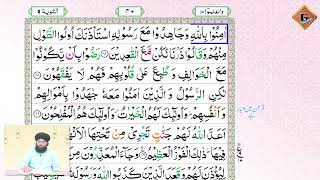 واعلموا ١٠ ٣٠٠ التوبة ٩
اٰمِنُوْا بِاللّٰهِ وَجَاهِدُوْا مَعَ رَسُوْلِهِ اسْتَاْذَنَكَ اُولُوا الطَّوْلِ
مِنْهُمْ وَقَالُوْا ذَرْنَا نَكُنْ مَّعَ الْقٰعِدِيْنَ رَضُوْا بِاَنْ يَّكُوْنُوْا
مَعَ الْخَوَالِفِ وَطُبِعَ عَلٰى قُلُوْبِهِمْ فَهُمْ لَا يَفْقَهُوْنَ
لٰكِنِ الرَّسُوْلُ وَالَّذِيْنَ اٰمَنُوْا مَعَهٗ جٰهَدُوْا بِاَمْوَالِهِمْ
وَاَنْفُسِهِمْ وَاُولٰٓئِكَ لَهُمُ الْخَيْرٰتُ وَاُولٰٓئِكَ هُمُ الْمُفْلِحُوْنَ
اَعَدَّ اللّٰهُ لَهُمْ جَنّٰتٍ تَجْرِيْ مِنْ تَحْتِهَا الْاَنْهٰرُ خٰلِدِيْنَ
فِيْهَا ذٰلِكَ الْفَوْزُ الْعَظِيْمُ وَجَآءَ الْمُعَذِّرُوْنَ مِنَ الْاَعْرَابِ
لِيُؤْذَنَ لَهُمْ وَقَعَدَ الَّذِيْنَ كَذَبُوا اللّٰهَ وَرَسُوْلَهٗ